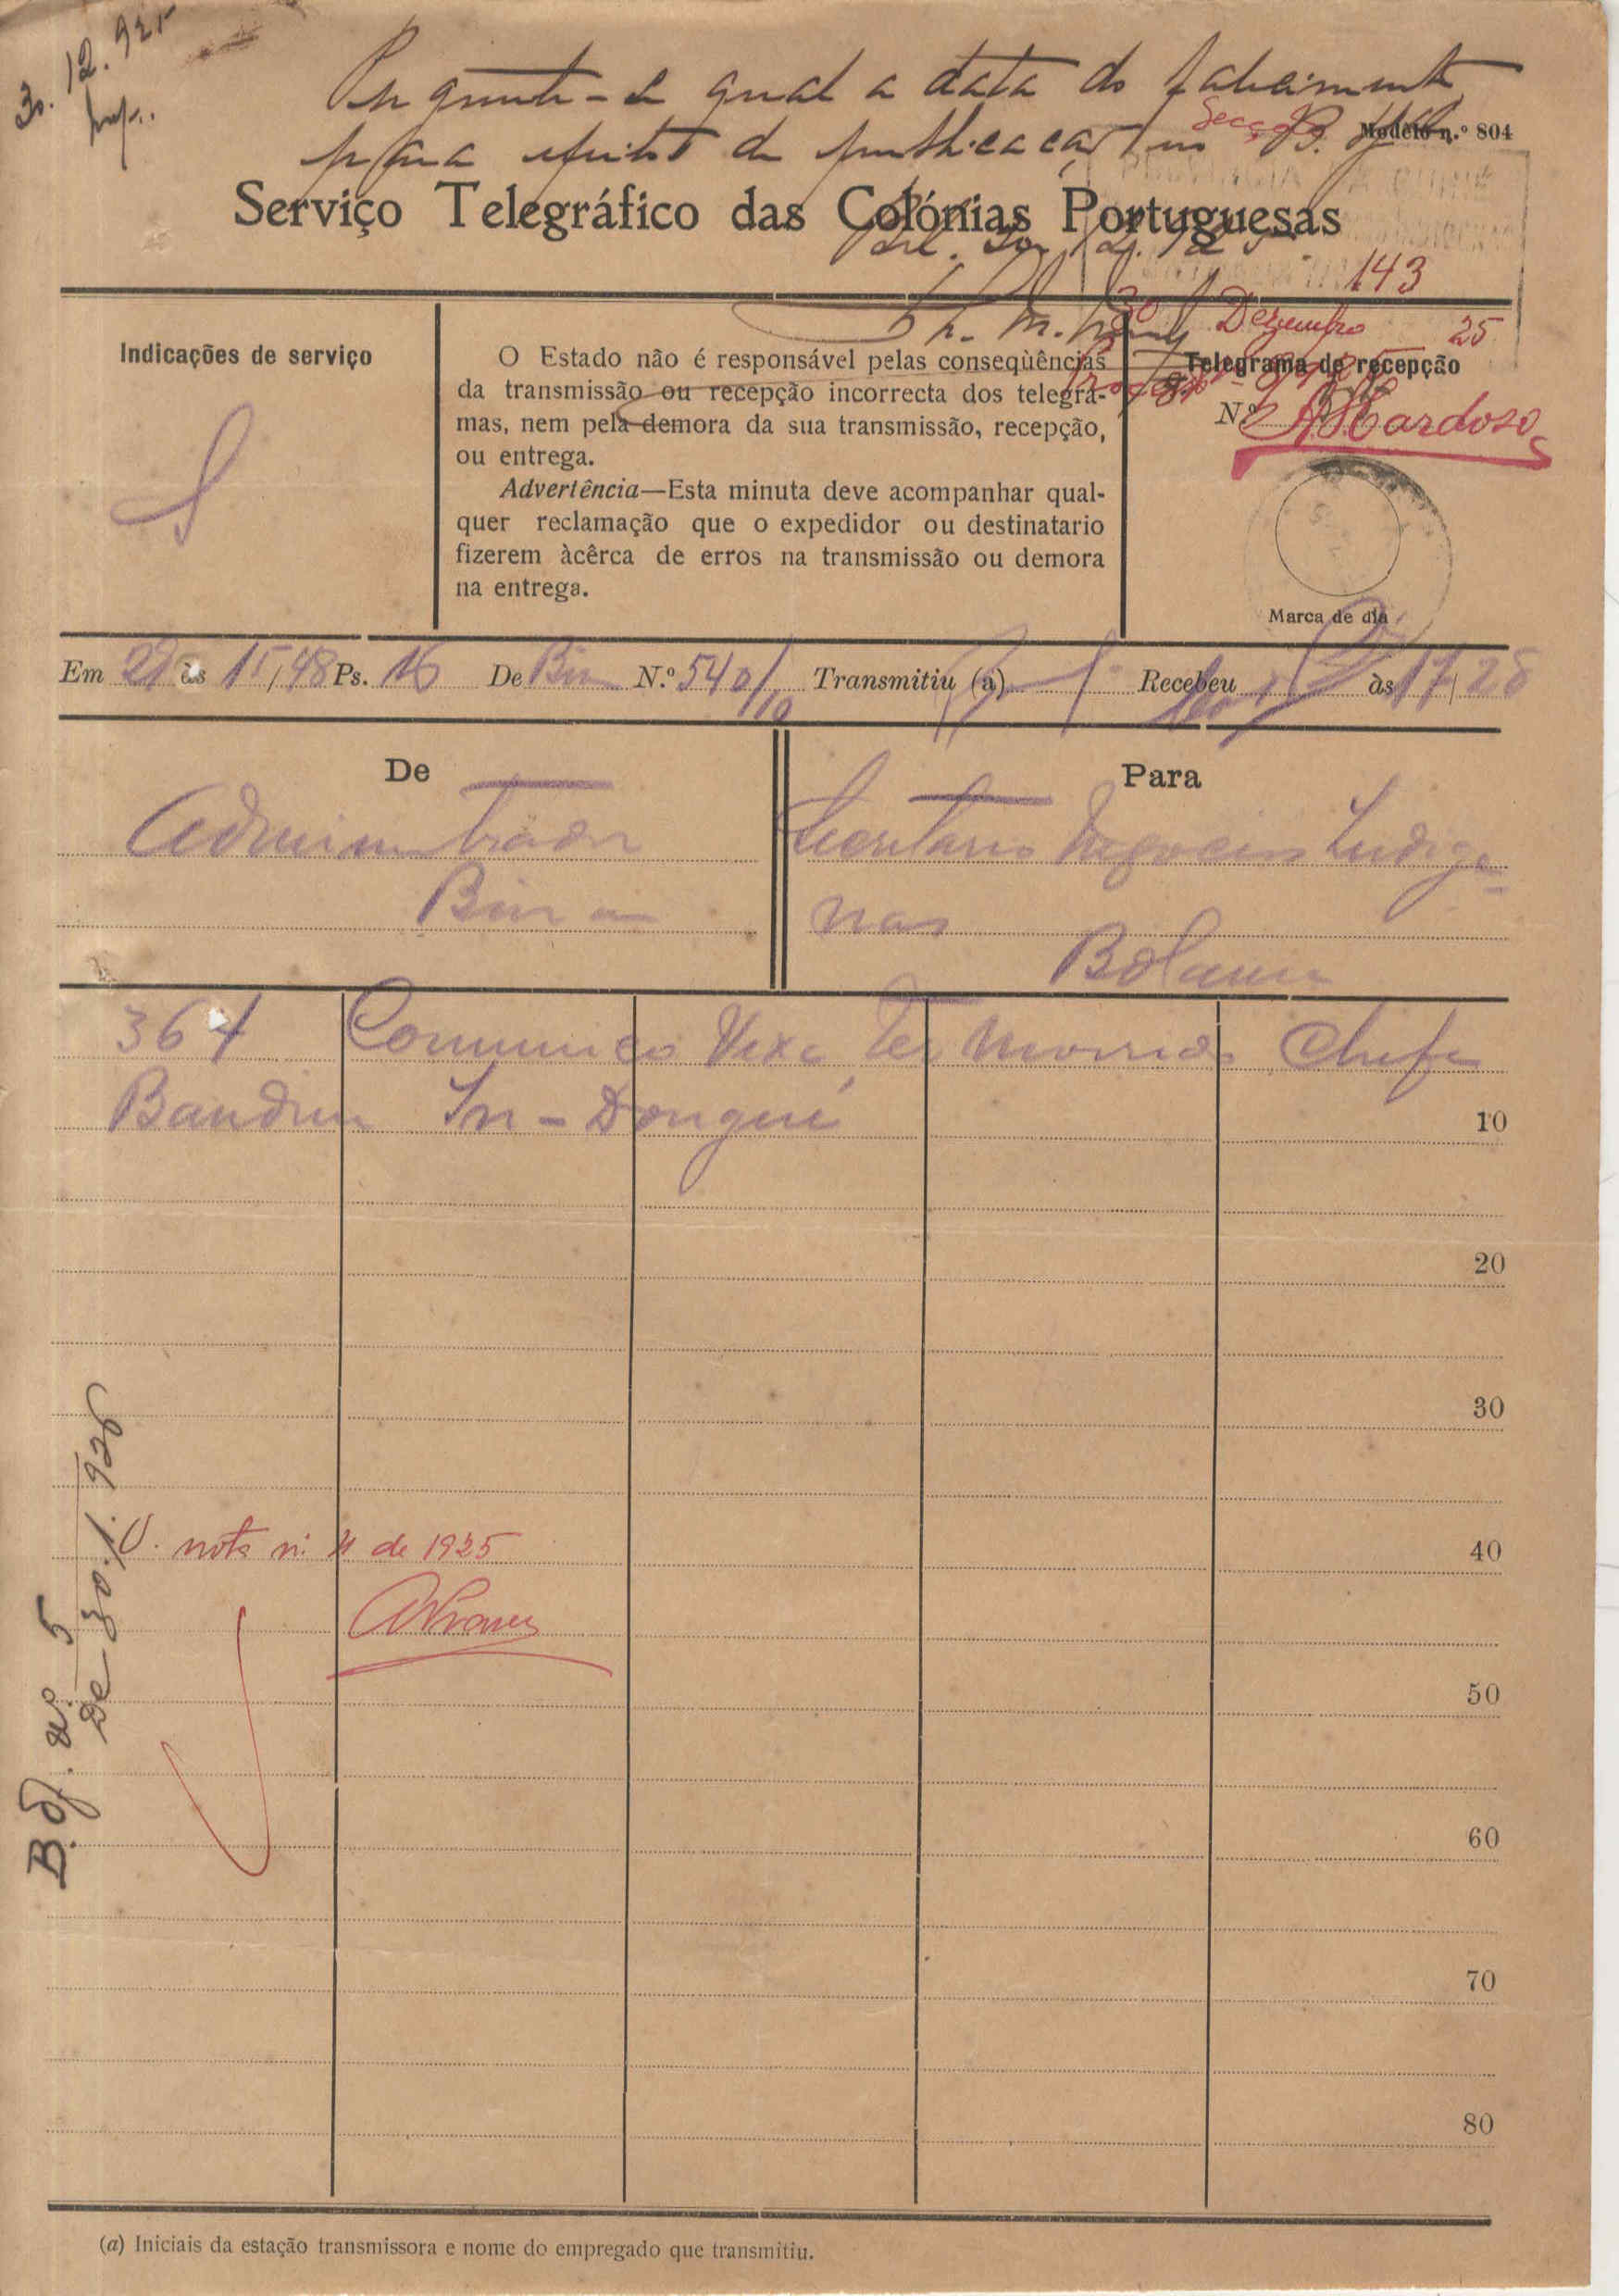 30.12.925
Pergunte-se qual a data do falecimento
para efeitos de publicação no B. Of.
Secção
Modelo n.º 804
PROVINCIA DA GUINÉ
Serviço Telegráfico das Colónias Portuguesas
143
30 Dezembro 25
Indicações de serviço
O Estado não é responsável pelas conseqùências
da transmissão ou recepção incorrecta dos telegra-
mas, nem pela demora da sua transmissão, recepção,
ou entrega.
Advertência—Esta minuta deve acompanhar qual-
quer reclamação que o expedidor ou destinatario
fizerem àcêrca de erros na transmissão ou demora
na entrega.
Telegrama de recepção
N.º
Cardoso
Marca de dia
Em 29 às 15,48 Ps. 16 De Bin N.º 540/10 Transmitiu (a) Recebeu às 17/28
De
Administrador
Para
Secretario Negocios Indige-
nas
Bolama
364 Comunico Vexa Ter Morrido Chefe
Bandim In-Dongué
10
20
30
40
50
60
70
80
V. nota n.º 4 de 1925
B. Of. nº 5
De 30.1.926
(a) Iniciais da estação transmissora e nome do empregado que transmitiu.